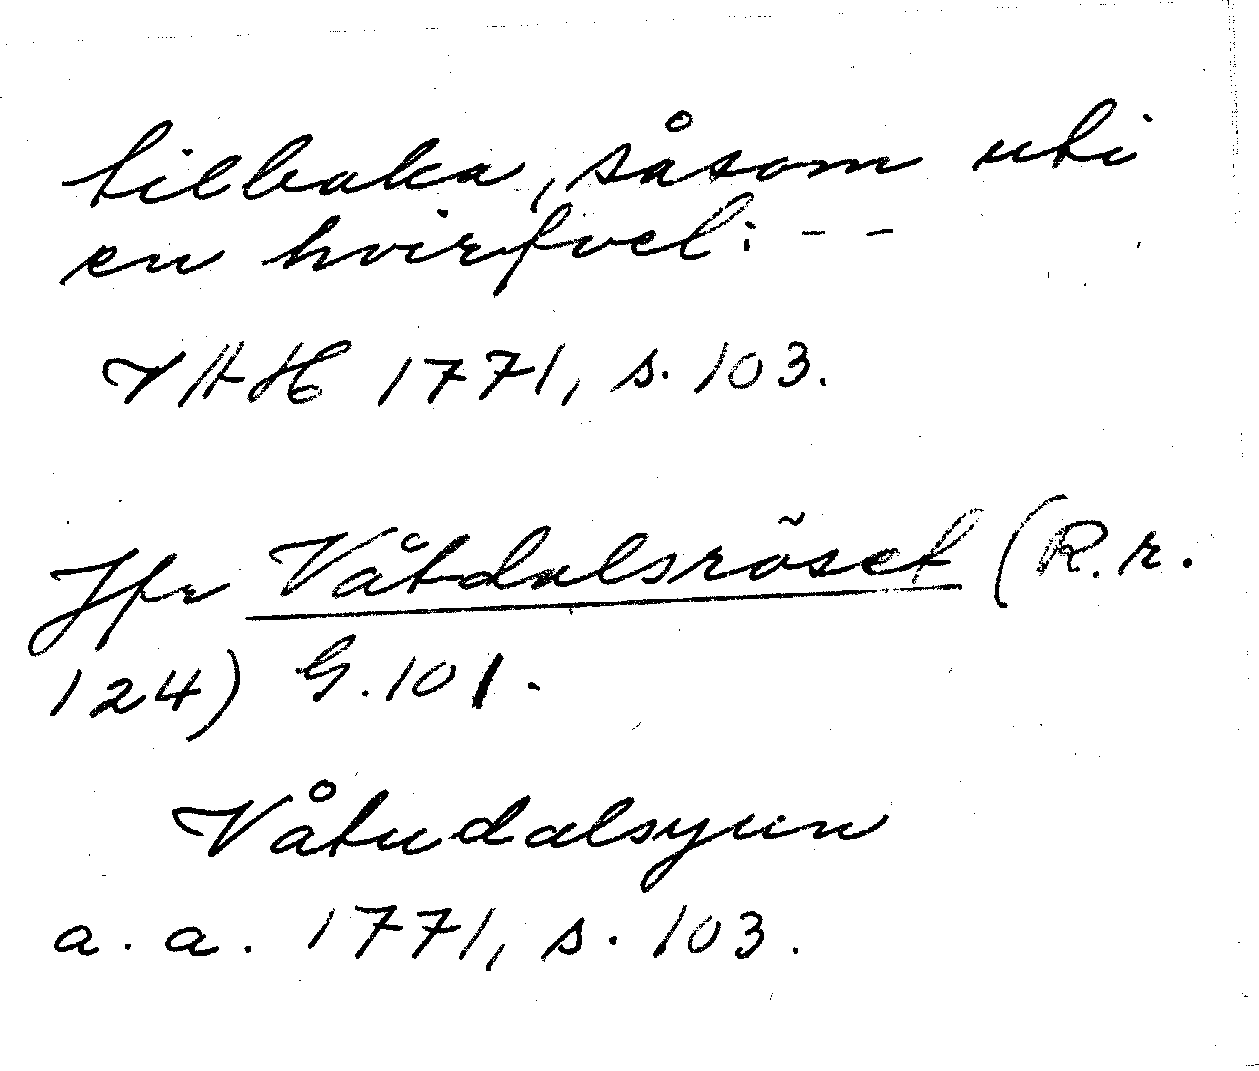 tilbaka, såsom uti
en hvirfvel: - -
VAH 1771, s. 103.
Jfr Våtdalsröset (R.r.
124) G. 101.
Våtudalsyun
a. a. 1771, s. 103.